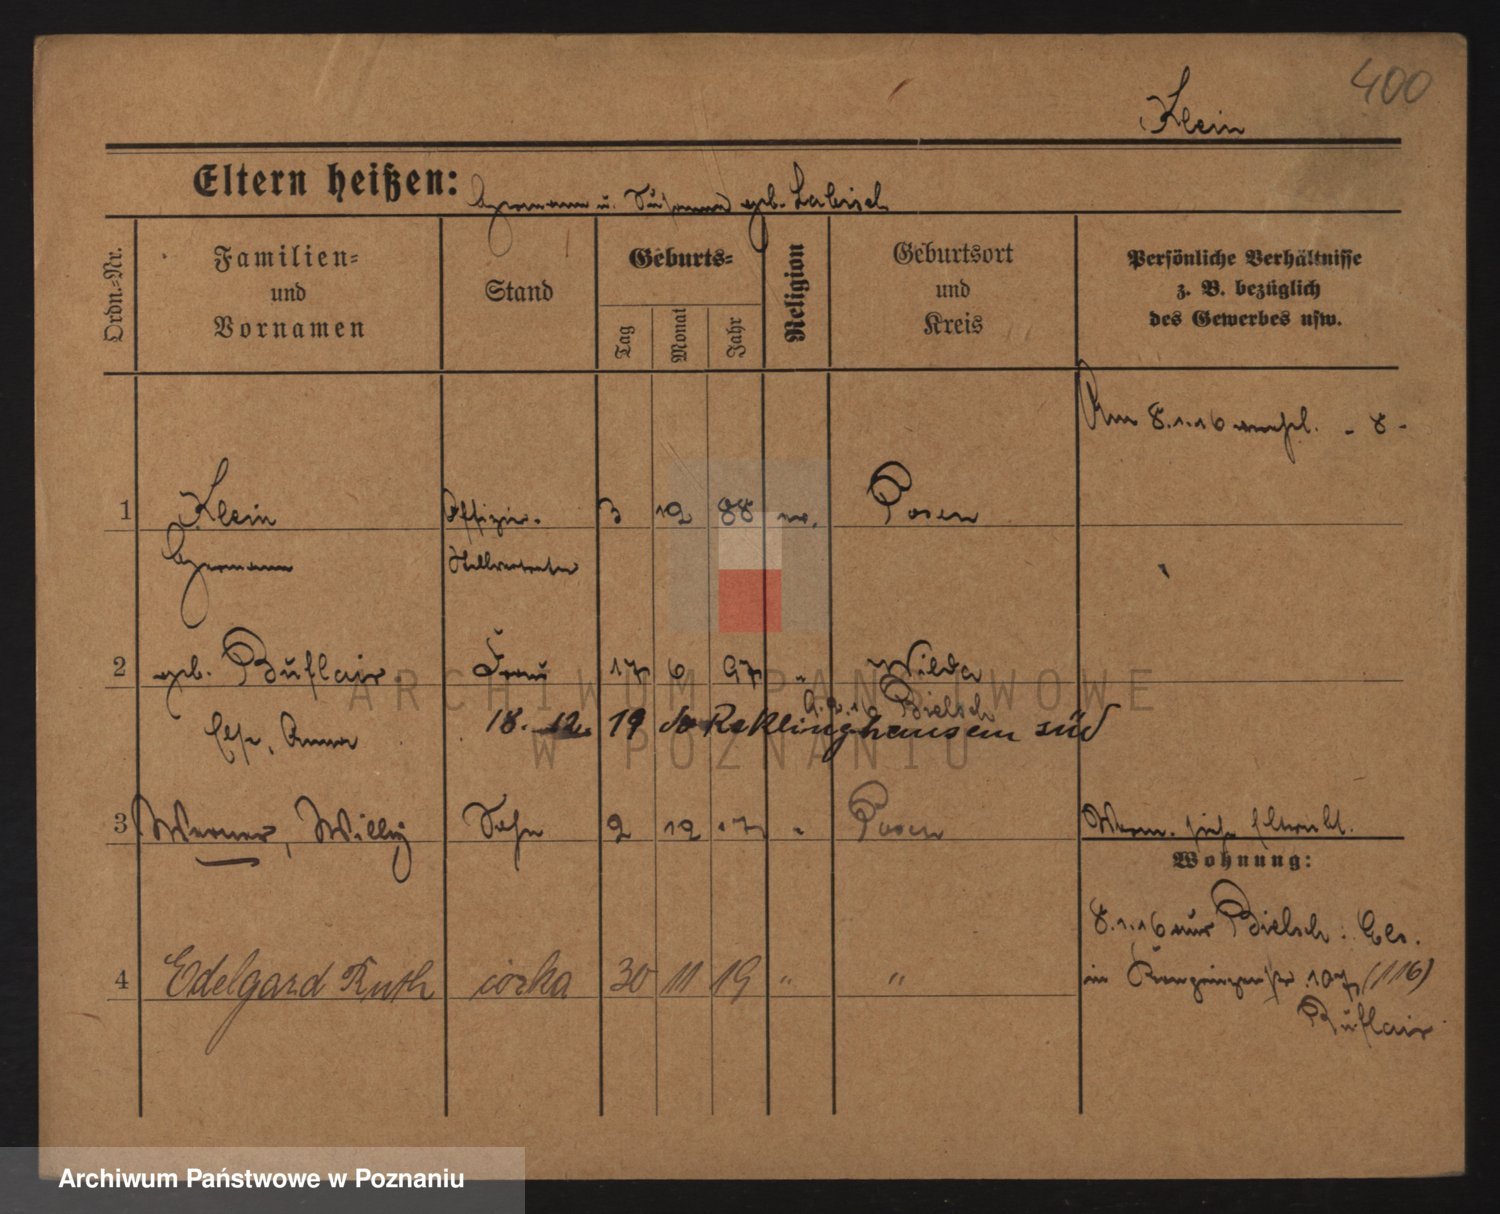 400
Klein
Eltern heißen: Hermann u. Susanna geb. Labisch
Ordn.-Nr.
Familien- und Vornamen
Stand
Geburts-
Tag
Monat
Jahr
Religion
Geburtsort und Kreis
Persönliche Verhältnisse z. B. bezüglich des Gewerbes usw.
Am 8.1.16 - 8 -
1 Klein Offizier- 3 12 88 Posen
Hermann Stellvertreter
2 geb. Buflair Frau 17 6 97 " Wilda
Bielsch
Else, Anna 18. 12. 19 Reklinghausen süd
3 Werner, Willy Sohn 2 12 17 " Posen
Wohnung:
8.1.16 aus Bielsch:
4 Edelgard Ruth córka 30 11 19 " "
in 107 (116)
Buflair
ARCHIWUM PAŃSTWOWE
W POZNANIU
Archiwum Państwowe w Poznaniu